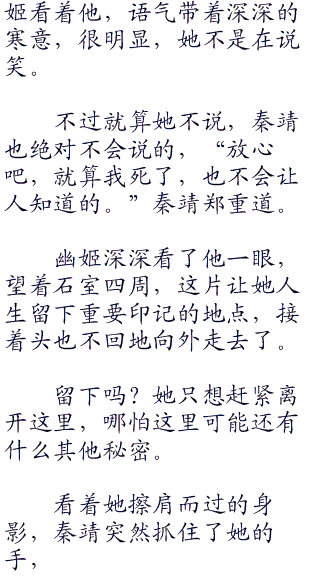 姬看着他，语气带着深深的
寒意，很明显，她不是在说
笑。
不过就算她不说，秦靖
也绝对不会说的，“放心
吧，就算我死了，也不会让
人知道的。”秦靖郑重道。
幽姬深深看了他一眼，
望着石室四周，这片让她人
生留下重要印记的地点，接
着头也不回地向外走去了。
留下吗？她只想赶紧离
开这里，哪怕这里可能还有
什么其他秘密。
看着她擦肩而过的身
影，秦靖突然抓住了她的
手，